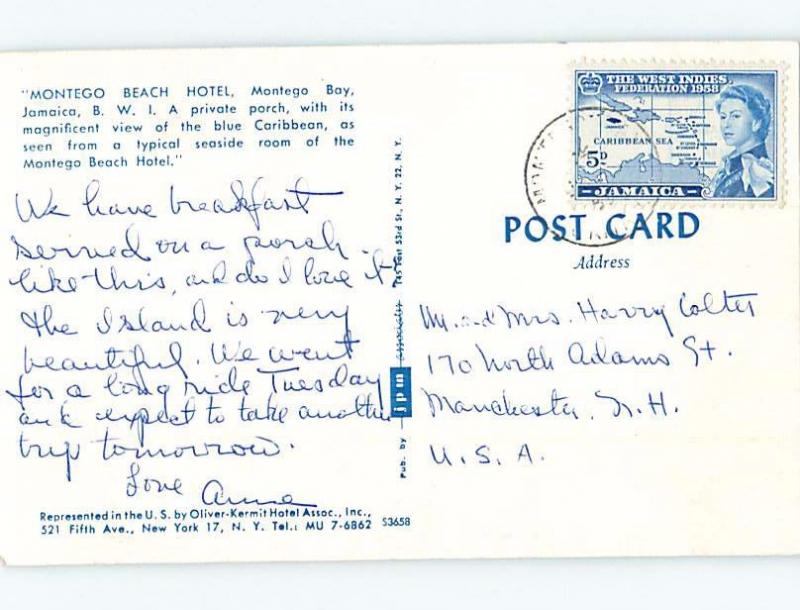 "MONTEGO BEACH HOTEL, Montego Bay,
Jamaica, B. W. I. A private porch, with its
magnificent view of the blue Caribbean, as
seen from a typical seaside room of the
Montego Beach Hotel."
We have breakfast
served on a porch
like this, and do I love it
the Island is very
beautiful. We went
for a long ride Tuesday
and expect to take another
trip tomorrow.
Love Anna
Represented in the U. S. by Oliver-Kermit Hotel Assoc., Inc.,
521 Fifth Ave., New York 17, N. Y. Tel.: MU 7-6862
S3658
Pub. by jpm associates 145 East 53rd St., N. Y. 22, N. Y.
THE WEST INDIES
FEDERATION 1958
JAMAICA
CARIBBEAN SEA
5D
JAMAICA
POST CARD
Address
Mr. and Mrs. Harry Colter
170 North Adams St.
Manchester, N. H.
U. S. A.